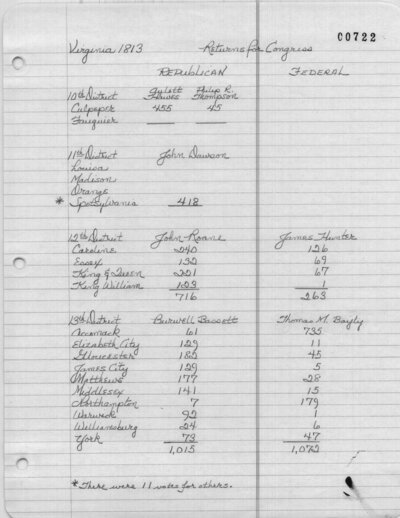 00722
Virginia 1813 Returns for Congress
REPUBLICAN FEDERAL
10th District Aylett Hawes Philip R. Thompson
Culpeper 455 45
Fauquier
11th District John Dawson
Louisa
Madison
Orange
* Spotsylvania 418
12th District John Roane James Hunter
Caroline 240 126
Essex 132 69
King & Queen 221 67
King William 123 1
716 263
13th District Burwell Bassett Thomas M. Bayly
Accomack 61 735
Elizabeth City 129 11
Gloucester 182 45
James City 129 5
Matthews 177 28
Middlesex 141 15
Northampton 7 179
Warwick 92 1
Williamsburg 24 6
York 73 47
1,015 1,072
*There were 11 votes for others.